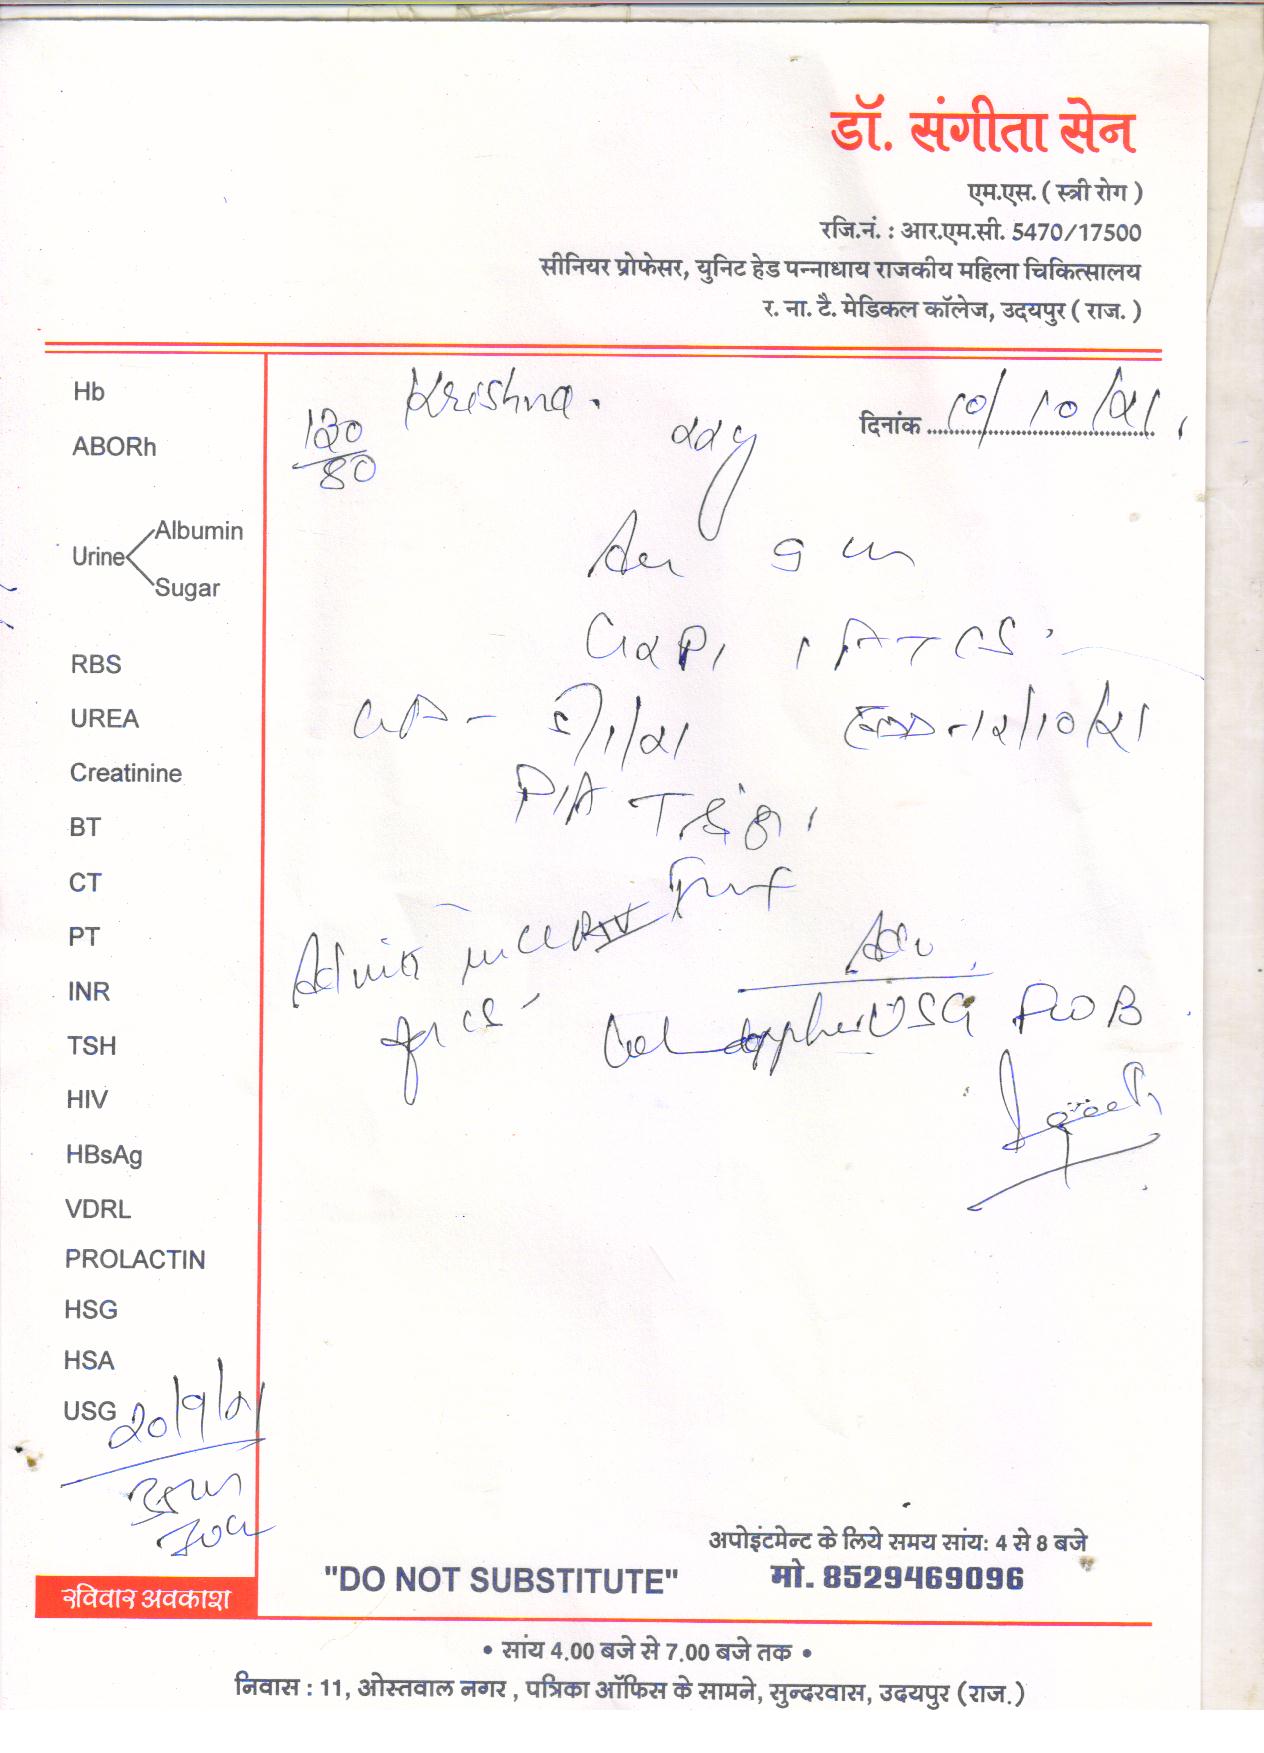 डॉ. संगीता सेन
एम.एस. ( स्त्री रोग )
रजि.नं. : आर.एम.सी. 5470/17500
सीनियर प्रोफेसर, युनिट हेड पन्नाधाय राजकीय महिला चिकित्सालय
र. ना. टै. मेडिकल कॉलेज, उदयपुर ( राज. )
Krishna.
दिनांक 10/10/21
130/80
22y
G2P1
5/1/21
EDD -12/10/21
P/A
Admit
for CS
Adv
doppler USG
Hb
ABORh
Urine
Albumin
Sugar
RBS
UREA
Creatinine
BT
CT
PT
INR
TSH
HIV
HBsAg
VDRL
PROLACTIN
HSG
HSA
USG
20/9/21
रविवार अवकाश
"DO NOT SUBSTITUTE"
अपोइंटमेन्ट के लिये समय सांय: 4 से 8 बजे
मो. 8529469096
• सांय 4.00 बजे से 7.00 बजे तक •
निवास : 11, ओस्तवाल नगर , पत्रिका ऑफिस के सामने, सुन्दरवास, उदयपुर (राज.)